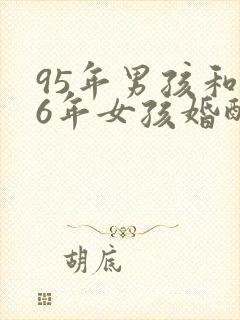 95年男孩和
6年女孩婚配
胡底